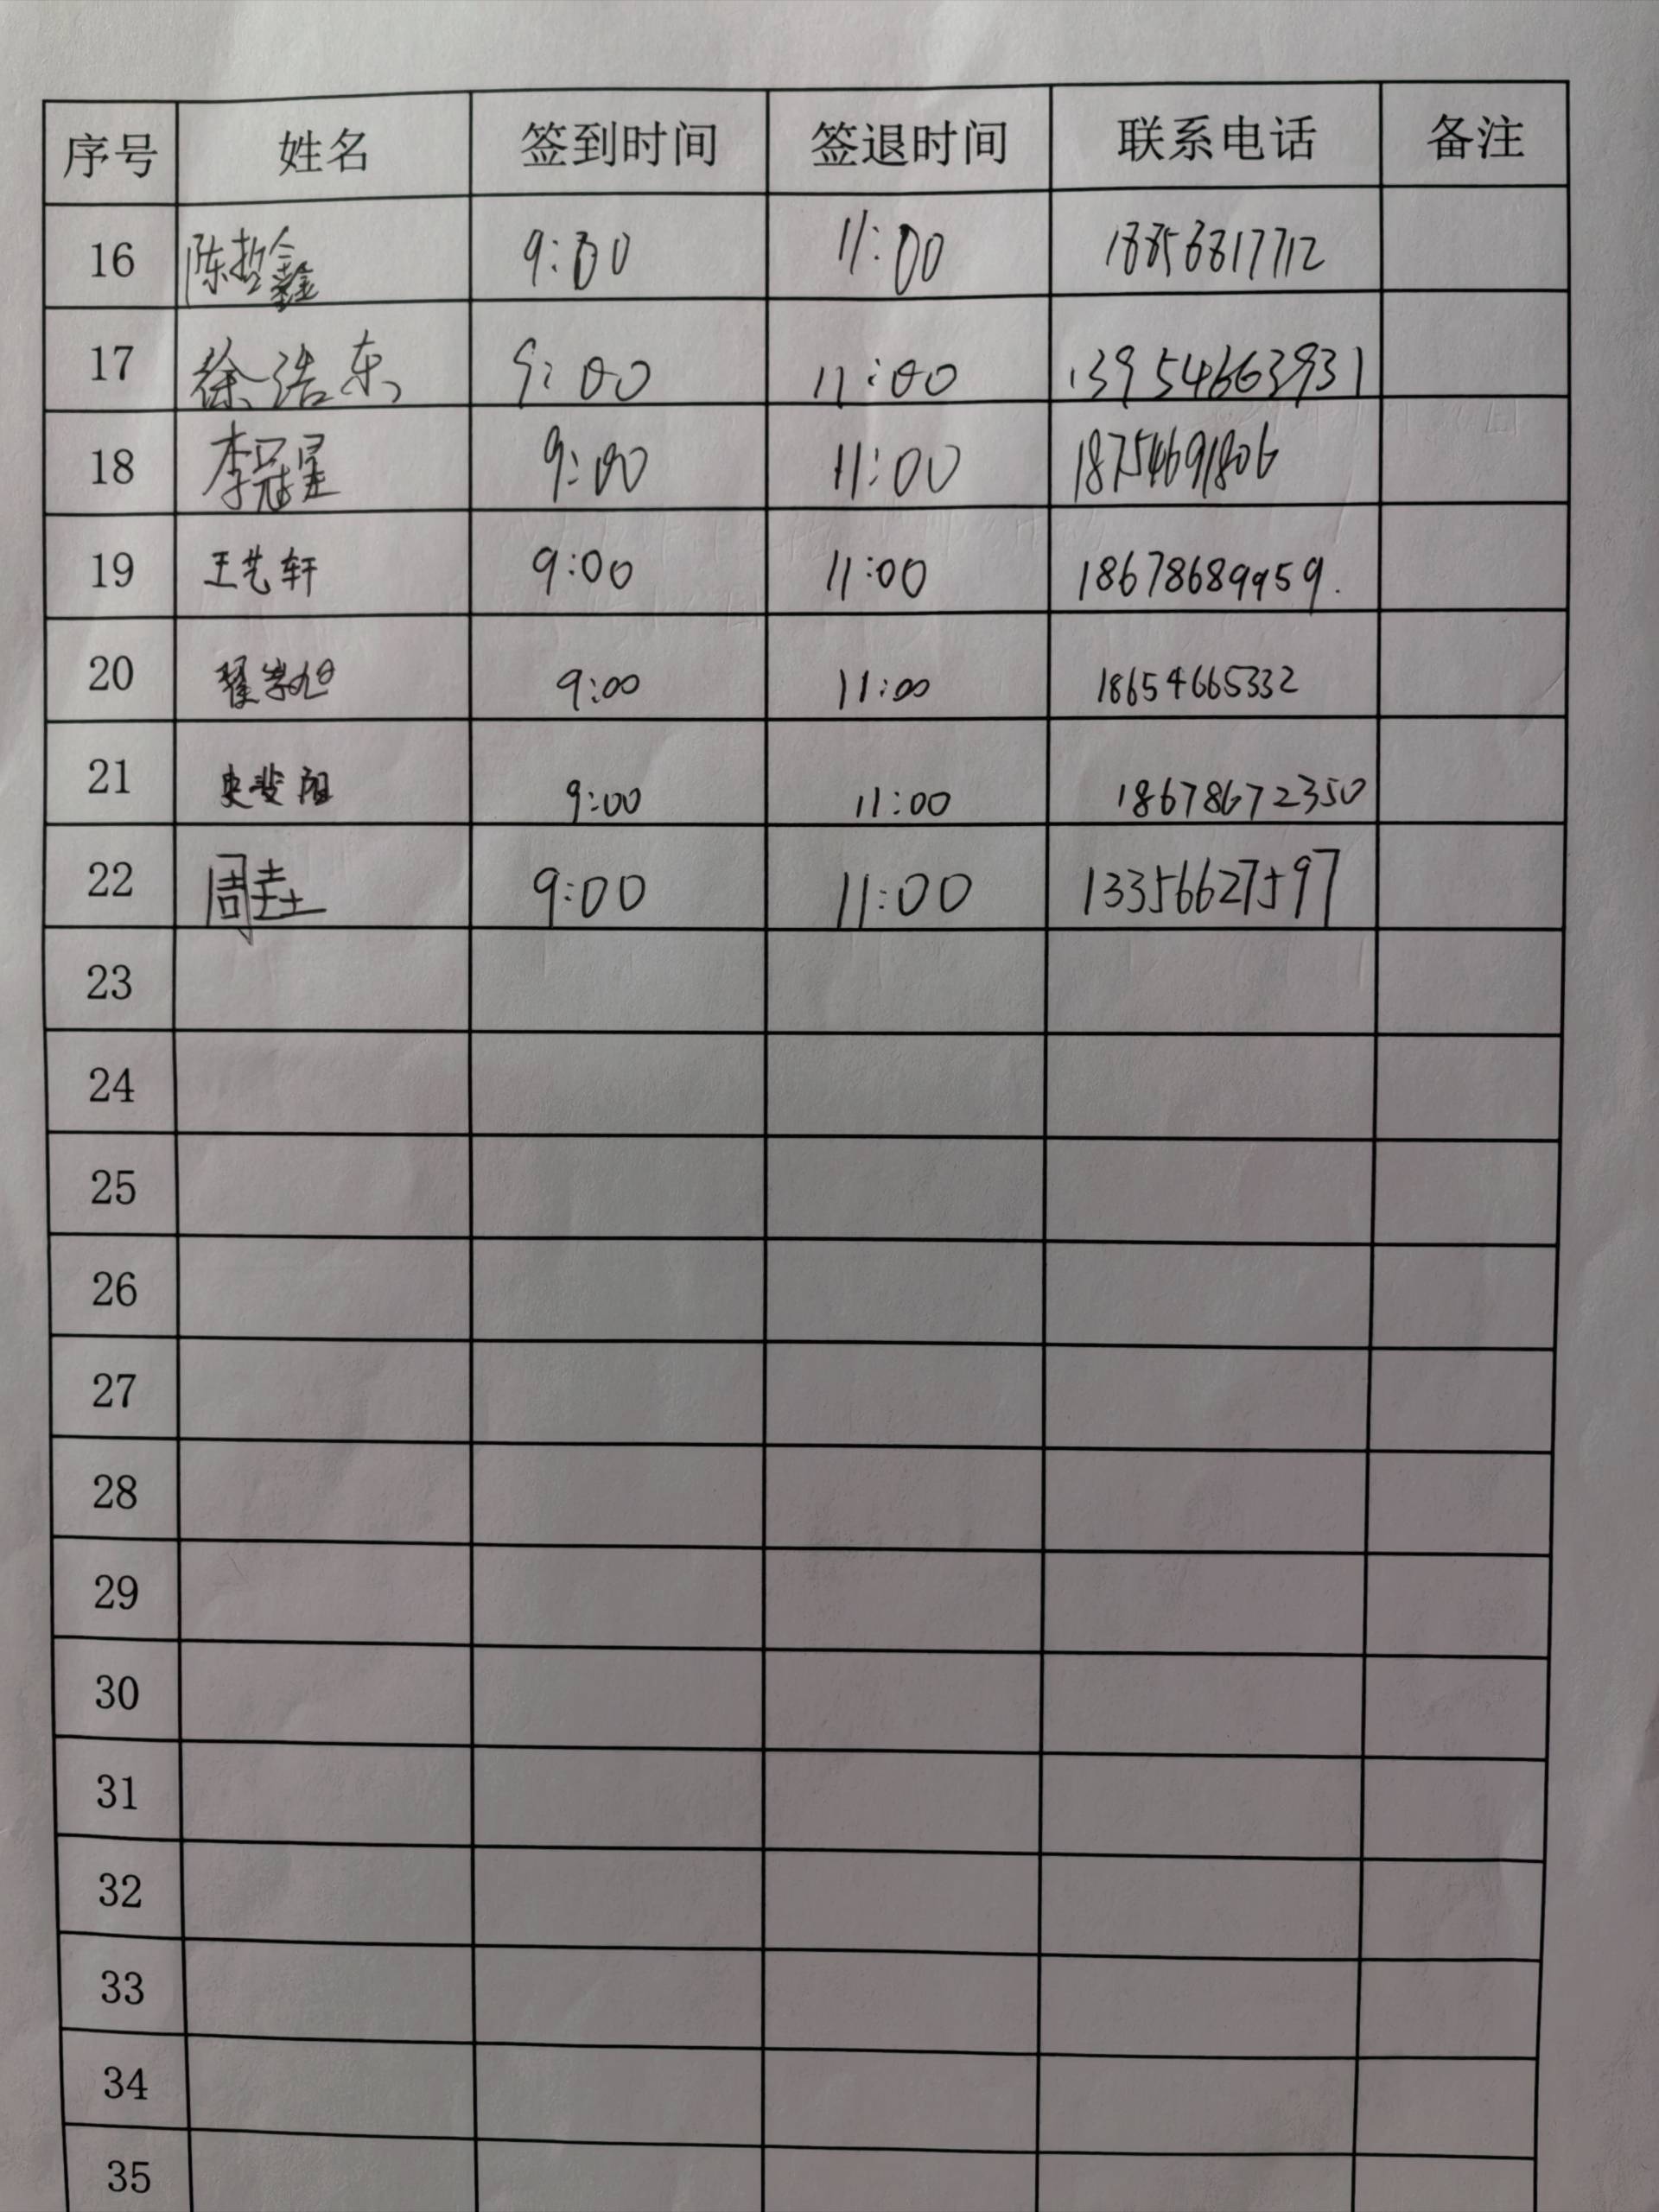 序号 姓名 签到时间 签退时间 联系电话 备注
16 陈哲鑫 9:00 11:00 18856817712
17 徐浩东 9:00 11:00 13954663931
18 李冠星 9:00 11:00 18754691806
19 王艺轩 9:00 11:00 18678689959.
20 9:00 11:00 18654665332
21 9:00 11:00 18678672350
22 周 9:00 11:00 13356627597
23
24
25
26
27
28
29
30
31
32
33
34
35